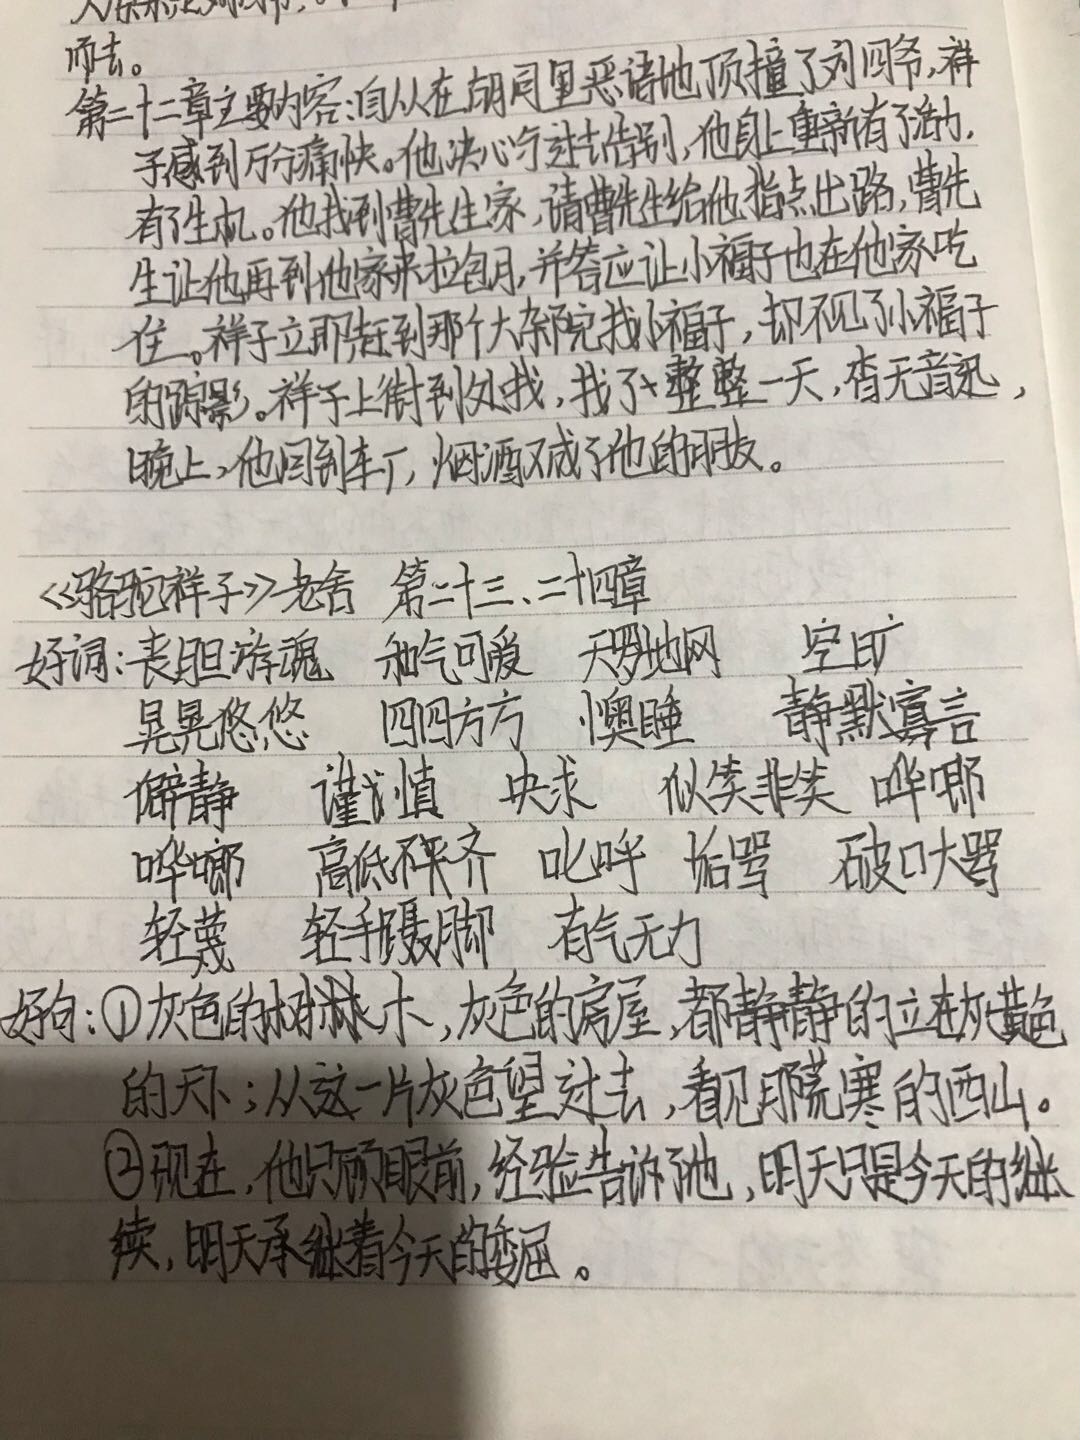 而去。
第二十二章主要内容：自从在胡同里恶语地顶撞了刘四爷，祥
子感到万分痛快。他决心与过去告别，他身上重新有了活力，
有了生机。他找到曹先生家，请曹先生给他指点出路，曹先
生让他再到他家来拉包月，并答应让小福子也在他家吃
住。祥子立即赶到那个大杂院找小福子，却不见了小福子
的踪影。祥子上街到处找，找了整整一天，杳无音讯，
晚上，他回到车厂，烟酒又成了他的朋友。
《骆驼祥子》老舍 第二十三、二十四章
好词：丧胆游魂 和气可爱 天罗地网 空旷
晃晃悠悠 四四方方 懊睡 静默寡言
僻静 谨慎 央求 似笑非笑 哗啷
哗啷 高低不平齐 叱呼 垢骂 破口大骂
轻蔑 轻手蹑脚 有气无力
好句：①灰色的树木，灰色的房屋，都静静的立在灰黄色
的天下；从这一片灰色望过去，看见那荒寒的西山。
②现在，他只顾眼前，经验告诉了他，明天只是今天的继
续，明天承继着今天的委屈。